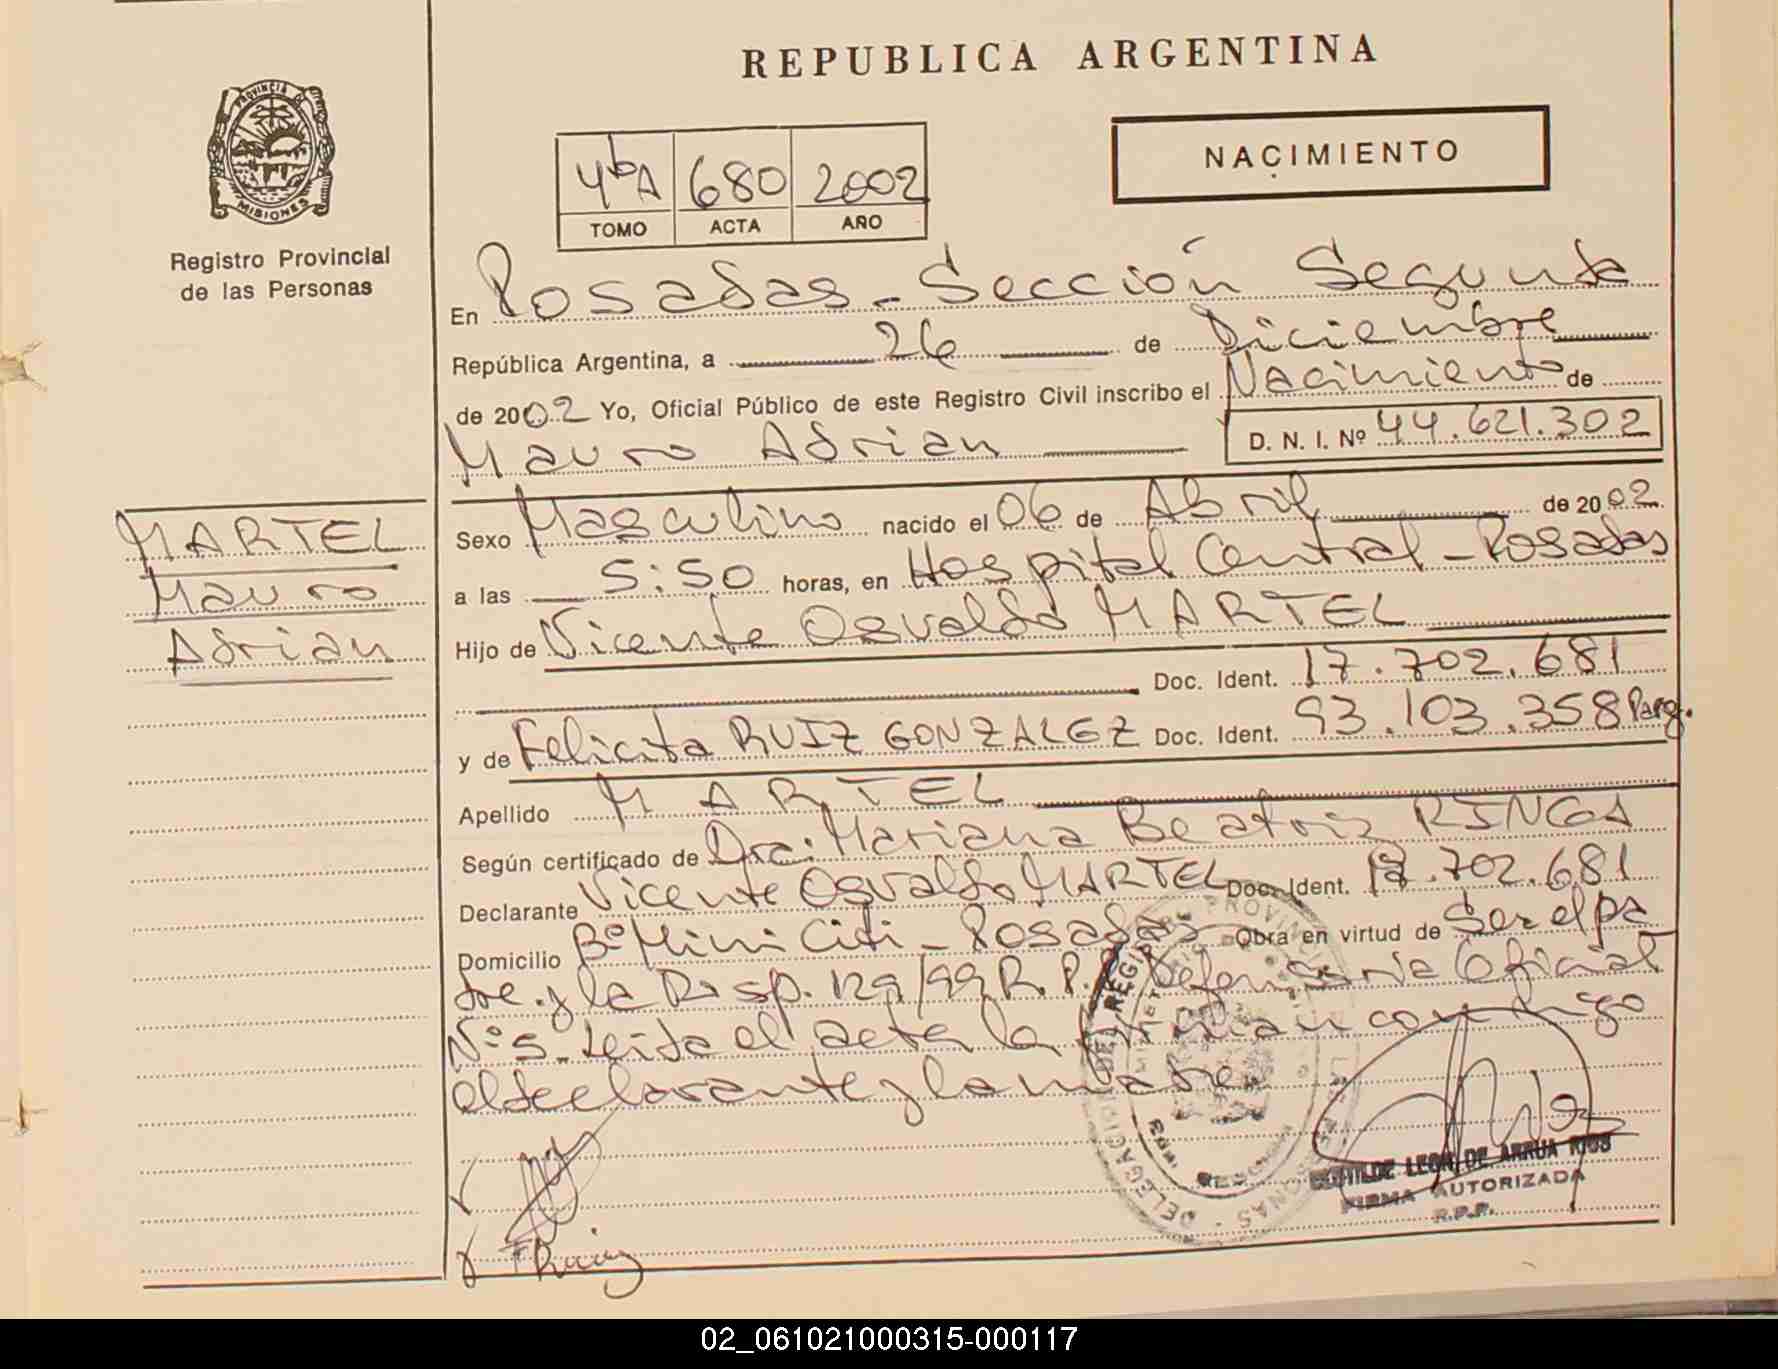 REPUBLICA ARGENTINA
PROVINCIA DE
MISIONES
Registro Provincial
de las Personas
4bA 680 2002
TOMO ACTA AÑO
NACIMIENTO
En Posadas - Sección Segunda
República Argentina, a 26 de Diciembre
de 2002 Yo, Oficial Público de este Registro Civil inscribo el Nacimiento de
Mauro Adrian D. N. I. Nº 44.621.302
MARTEL
Mauro
Adrian
Sexo Masculino nacido el 06 de Abril de 2002
a las 5:50 horas, en Hospital Central - Posadas
Hijo de Vicente Osvaldo MARTEL
Doc. Ident. 17.702.681
y de Felicita RUIZ GONZALEZ Doc. Ident. 93.103.358 Parg.
Apellido MARTEL
Según certificado de Dra: Mariana Beatriz RINGA
Declarante Vicente Osvaldo MARTEL Doc. Ident. 17.702.681
Domicilio Bº Mini Citi - Posadas Obra en virtud de Ser el pa
dre. y la Disp. 129/99 R.P.P. Defensoria Oficial
Nº 5 - Leida el acta la firman conmigo
el declarante y la madre
F Ruiz
CLOTILDE LEON DE ARRUA RIOS
FIRMA AUTORIZADA
R.P.P.
02_061021000315-000117